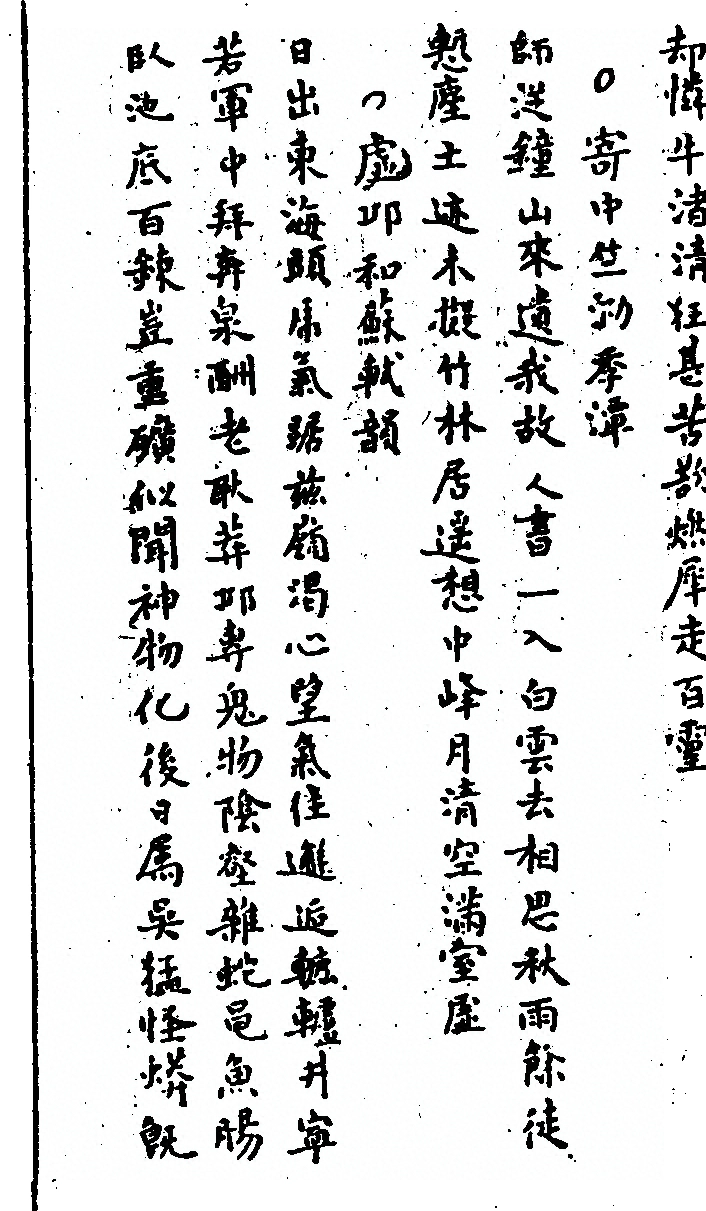 却憐牛渚清狂甚苦欲燃犀走百靈
○寄中竺泐季潭
師從鐘山來遺我故人書一入白雲去相思秋雨餘徒
慙塵土迹未擬竹林居遥想中峰月清空滿室虛
○虛邱和蘇軾韻
日出東海頭氣踞茲嶺渴心望氣佳邂逅轆轤井寧
若軍中拜奔泉酬老耿葬邱專鬼物陰壑雜蛇黽魚腸
臥池底百鍊豈重礦似聞神物化後日為吳猛怪蟒既